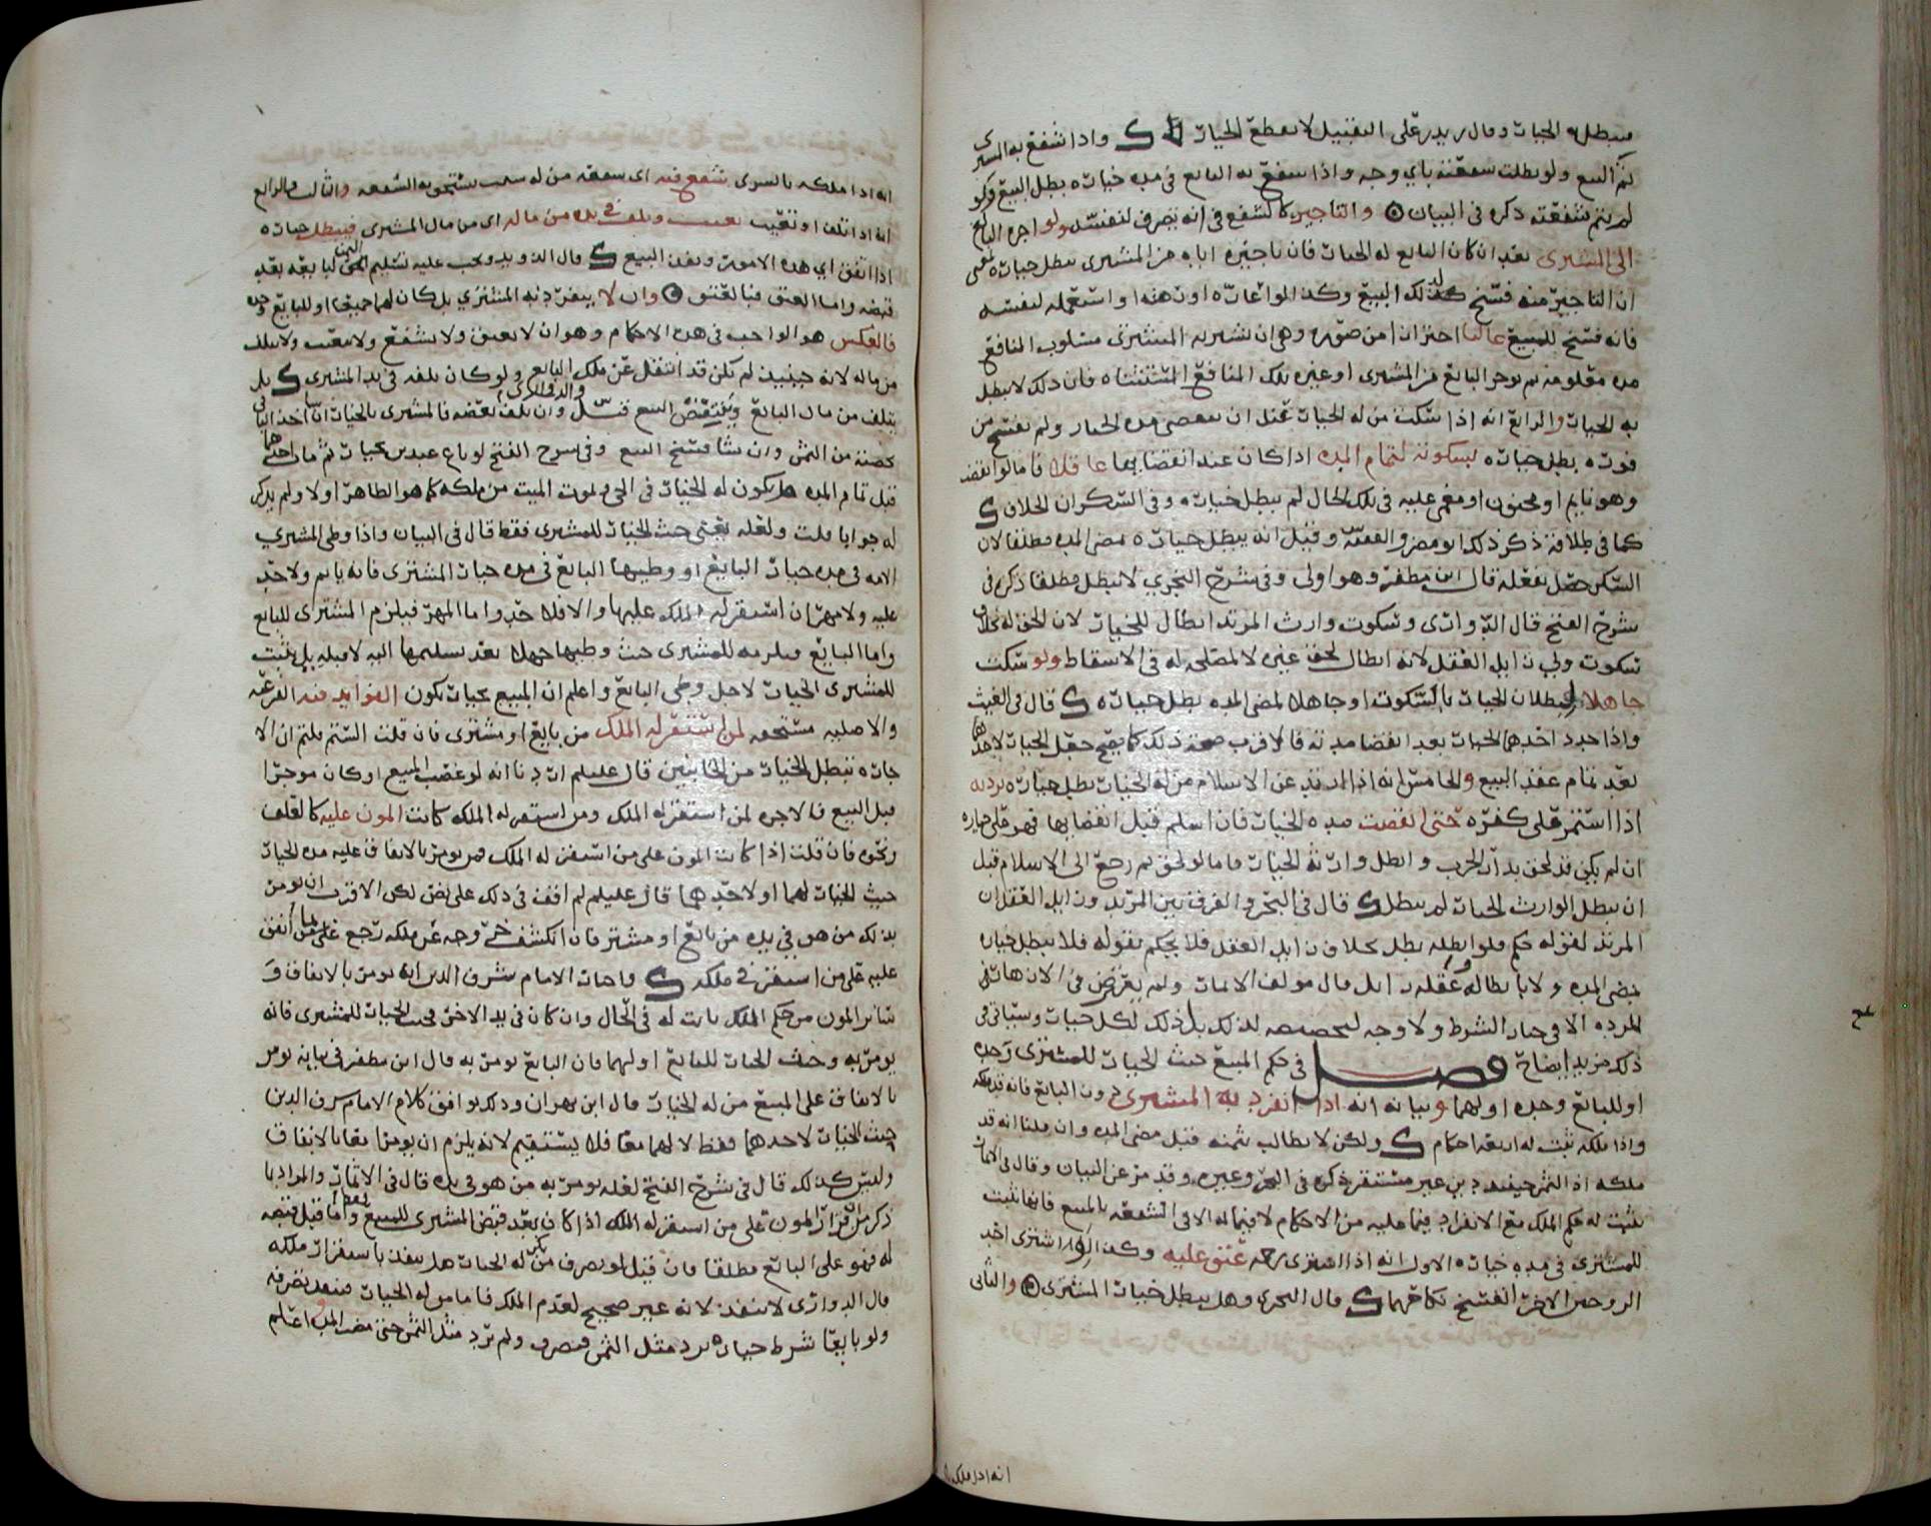 فيبطل به الخيار وقال زيد بن علي التقبيل لا يقطع الخيار واذا شفع به المشتري
تم البيع ولو بطلت شفعته باي وجه واذا شفع به البايع في مده خياره بطل البيع ولو
لم يتم شفعته ذكره في البيان والتاجير كالشفع في انه تصرف لنفسه ولو اجره البايع
الى المشتري بعد ان كان البايع له الخيار فان تاجيره اياه من المشتري يبطل خياره
ان التاجير منه فسخ لذلك البيع وكذا لو اعاره او رهنه او استعمله لنفسه
فانه فسخ للمبيع غالبا احترازا من صوره وهي ان يشتريه المشتري مسلوب المنافع
مده معلومه ثم يوجر البايع من المشتري او غيره تلك المنافع المستثناه فان ذلك لا يبطل
به الخيار والرابع انه اذا سكت من له الخيار قبل ان تمضي مده الخيار ولم يفسخ
فوره بطل خياره بسكوته لتمام المده اذا كان عند انقضايها عاقلا فاما لو انقضت
وهو نايم او مجنون او مغمى عليه في تلك الحال لم يبطل خياره وفي السكران الخلاف
كما في طلاقه ذكر ذلك ابو مضر والفقيه س وقيل انه يبطل خياره بمضي المده مطلقا لان
السكر حصل بفعله قال ابن مظفر وهو اولى وفي شرح البحري لا يبطل مطلقا ذكره في
شرح الفتح قال الدواري وسكوت وارث المرتد ابطال للخيار لان الحق له بخلاف
سكوت ولي زايل العقل لانه ابطال لحق غيره لا لمصلحه له في الاسقاط ولو سكت
جاهلا لبطلان الخيار بالسكوت او جاهلا لمضي المده بطل خياره قال في الغيث
واذا جدد احدهما الخيار بعد انقضا مدته فالاقرب صحه ذلك كما يصح جعل الخيار لاحدهما
بعد تمام عقد البيع والخامس انه اذا ارتد عن الاسلام من له الخيار بطل خياره بردته
اذا استمر على كفره حتى انقضت مده الخيار فان اسلم قبل انقضايها فهو على خياره
ان لم يكن قد لحق بدار الحرب وابطل وارثه الخيار فاما لو لحق ثم رجع الى الاسلام قبل
ان يبطل الوارث الخيار لم يبطل قال في البحر والفرق بين المرتد وزايل العقل ان
المرتد لقوله حكم فلو ابطله بطل بخلاف زايل العقل فلا حكم لقوله فلا يبطل خياره
بمضي المده ولا بابطاله وعقله زايل قال مولف الاثمار ولم يتعرض في الازهار
للرده الا في خيار الشرط ولا وجه لتخصيصه لذلك بل ذلك لكل خيار وسياتي في
ذلك مزيد ايضاح فصل في حكم المبيع حيث الخيار للمشتري وحده
او للبايع وحده او لهما وبيانه انه اذا انفرد به المشتري دون البايع فانه قد ملكه
واذا ملكه ثبت له اربعه احكام ولكن لا يطالب بثمنه قبل مضي المده وان قلنا انه قد
ملكه اذ الثمن حينيذ دين غير مستقر ذكره في البحر وغيره وقد مر عن البيان وقال في الاثمار
يثبت له حكم الملك مع الانفراد فيما عليه من الاحكام لا فيما له الا في الشفعه بالمبيع فانها تثبت
للمشتري في مده خياره الاول انه اذا اشترى رحمه عتق عليه وكذا لو اشترى احد
الزوجين الاخر انفسخ نكاحهما قال النجري وهل يبطل خيار المشتري والثاني
انه اذا ملكه
انه اذا ملكه بالشرى شفع فيه اي بسببه من له سبب يستحق به الشفعه والثالث والرابع
انه اذا تلف او تعيب تعيب وتلف في يده من ماله اي من مال المشتري فيبطل خياره
اذا اتفق اي هذه الامور ونفذ البيع قال الدويد ويجب عليه تسليم الثمن للبايع بعد
قبضه واما العتق فبالعتق وان لا ينفرد به المشتري بل كان لهما جميعا او للبايع وحده
فالعكس هو الواجب في هذه الاحكام وهو ان لا يعتق ولا يشفع ولا يتعيب ولا يتلف
من ماله لانه حينيذ لم يكن قد انتقل عن ملك البايع ولو كان تلفه في يد المشتري بل
يتلف من مال البايع وينتقض البيع وان تلف بعضه فالمشتري بالخيار ان شا اخذ الباقي
بحصته من الثمن وان شا فسخ البيع وفي شرح الفتح لو باع عبدين بخيار ثم مات احدهما
قبل تمام المده هل يكون له الخيار في الحي ويموت الميت من ملكه كما هو الظاهر اولا ولم يذكر
له جوابا قلت ولعله يعني حيث الخيار للمشتري فقط قال في البيان واذا وطى المشتري
الامه في مده خيار البايع او وطيها البايع في مده خيار المشتري فانه ياثم ولا حد
عليه ولا مهر ان استقر له الملك عليها والا فلا حد واما المهر فيلزم المشتري للبايع
واما البايع فيلزمه للمشتري حيث وطيها جهلا بعد تسليمها اليه لا قبله بل يثبت
للمشتري الخيار لاجل وطى البايع واعلم ان المبيع بخيار تكون الفوايد فيه الفرعيه
والاصليه مستحقه لمن استقر له الملك من بايع او مشتري فان قلت الستم قلتم ان الا
جاره تبطل الخيار من الجانبين قال عليلم اردنا انه لو غصب المبيع او كان موجرا
قبل البيع فالاجره لمن استقر له الملك ومن استقر له الملك كانت المون عليه كالعلف
ونحوه فان قلت اذا كانت المون على من استقر له الملك فمن يومر بالانفاق عليه مده الخيار
حيث الخيار لهما او لاحدهما قال عليلم لم اقف في ذلك على نص لكن الاقرب ان يومر
بذلك من هو في يده من بايع او مشتر فان انكشف خروجه عن ملكه رجع بما انفق
عليه على من استقر في ملكه واجاب الامام شرف الدين انه يومر بالانفاق و
ساير المون من حكم الملك بات له في الحال وان كان في يد الاخر فحيث الخيار للمشتري فانه
يومر به وحيث الخيار للبايع او لهما فان البايع يومر به قال ابن مظفر في بيانه يومر
بالانفاق على المبيع من له الخيار قال ابن بهران وذلك يوافق كلام الامام شرف الدين
حيث الخيار لاحدهما فقط لا لهما معا فلا يستقيم لانه يلزم ان يومرا معا بالانفاق
وليس كذلك قال في شرح الفتح لعله يومر به من هو في يده قال في الاثمار والمراد بما
ذكر من قرار المون على من استقر له الملك اذا كان بعد قبض المشتري للمبيع واما قبل قبضه
له فهو على البايع مطلقا فان قيل لو تصرف من له الخيار هل ينفذ باستقرار ملكه
قال الدواري لا ينفذ لانه غير صحيح لعدم الملك فاما من له الخيار فينفذ تصرفه
ولو بايعا شرط خياره برد مثل الثمن فتصرف ولم يرد مثل الثمن حتى مضت المده واعلم